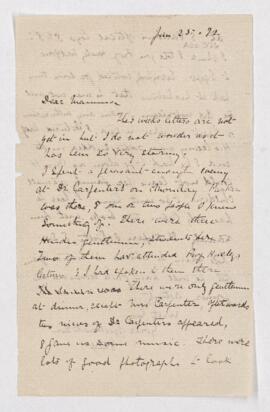 Jan 25. 74
Dear Mamma
This weeks letters are not
got in but I do not wonder as it
has been so very stormy.
I spent a pleasant enough evening
at Dr Carpenters on Thursday. Parker
was there, & one or two people I knew
something of. There were three
Hindoo gentlemen, students here,
two of them had attended Prof
lectures & I had spoken to them there
There were only gentlemen
at dinner, except Mrs Carpenter. Afterwards
two nieces of Dr Carpenters appeared,
& gave us some music. There were
lots of good photographs to look